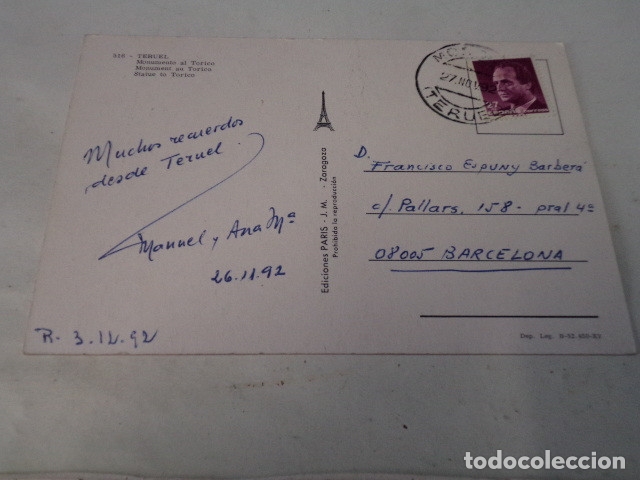 TERUEL
Monumento al Torico
Monument au Torico
Statue to Torico
Muchos recuerdos
desde Teruel.
Manuel y Ana Mª
26.11.92
R. 3.12.92
Ediciones PARIS - J. M. - Zaragoza
Prohibida la reproducción
27 NOV
TERUEL
D.
Francisco Espuny Barberá
c/. Pallars, 158 - pral 4ª
08005 BARCELONA
Dep. Leg.
todocoleccion